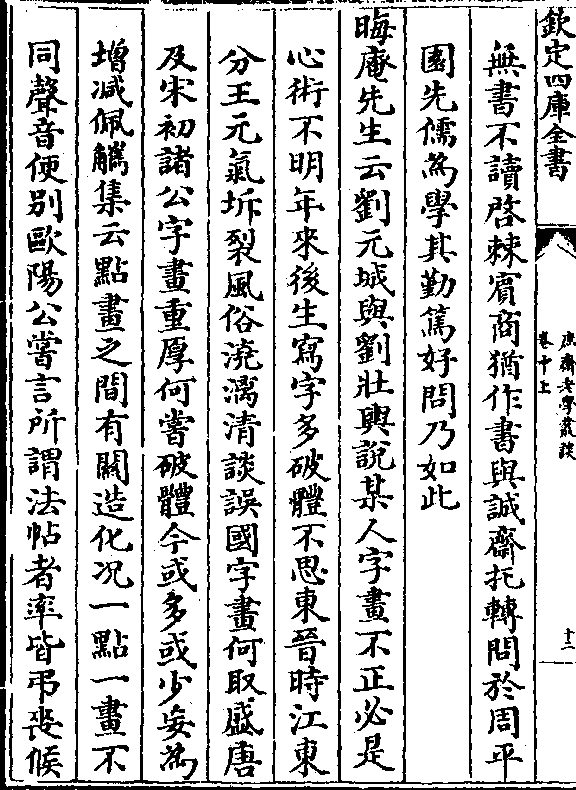 欽定四庫全書
庶齋老學叢談
卷中上
十二
無書不讀啓棘賔商猶作書與誠齋托轉問於周平
園先儒為學其勤篤好問乃如此
晦庵先生云劉元城與劉壯輿說某人字畫不正必是
心術不明年來後生寫字多破體不思東晉時江東
分王元氣坼裂風俗澆漓清談誤國字畫何取盛唐
及宋初諸公字畫重厚何嘗破體今或多或少妄為
增減佩觿集云點畫之間有關造化况一點一畫不
同聲音便別歐陽公嘗言所謂法帖者率皆弔喪候